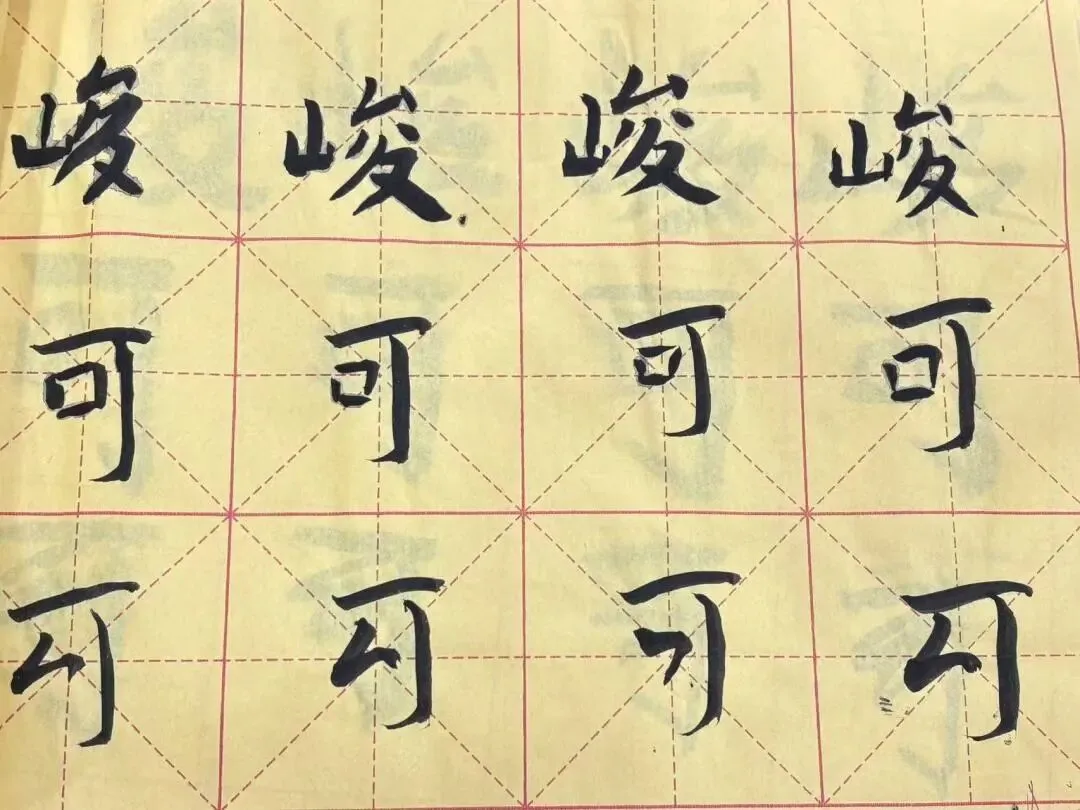 峻峻峻峻
可可可可
可可可可